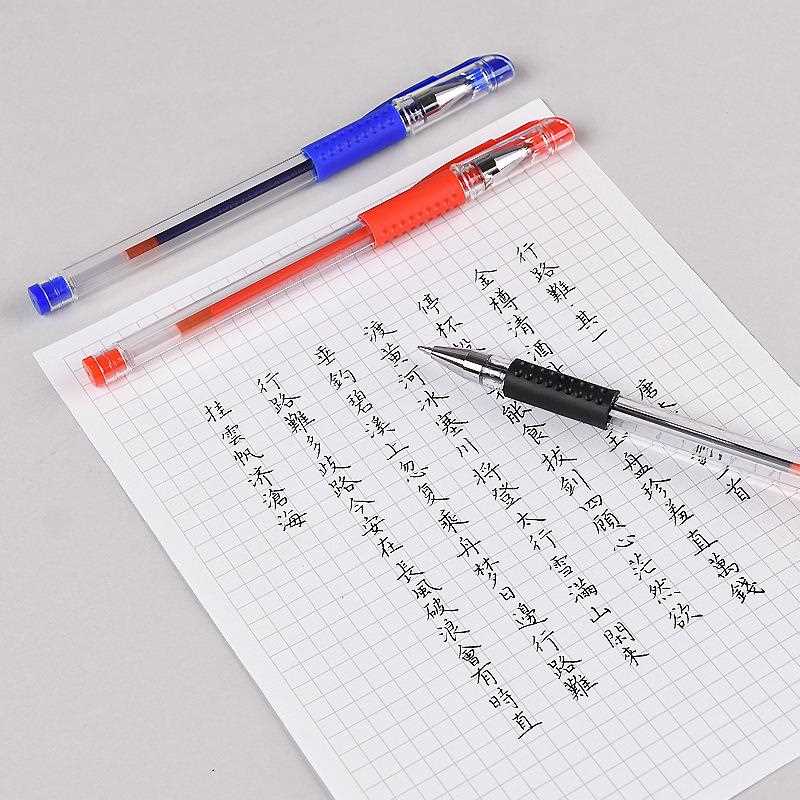 行路難 其一 唐 二首
金樽清酒 玉盤珍羞直萬錢
停杯 能食拔劍四顧心茫然欲
渡黃河冰塞川將登太行雪滿山閑來
垂釣碧溪上忽复乘舟梦日邊行路難
行路難多歧路今安在長風破浪會有時直
挂雲帆济滄海